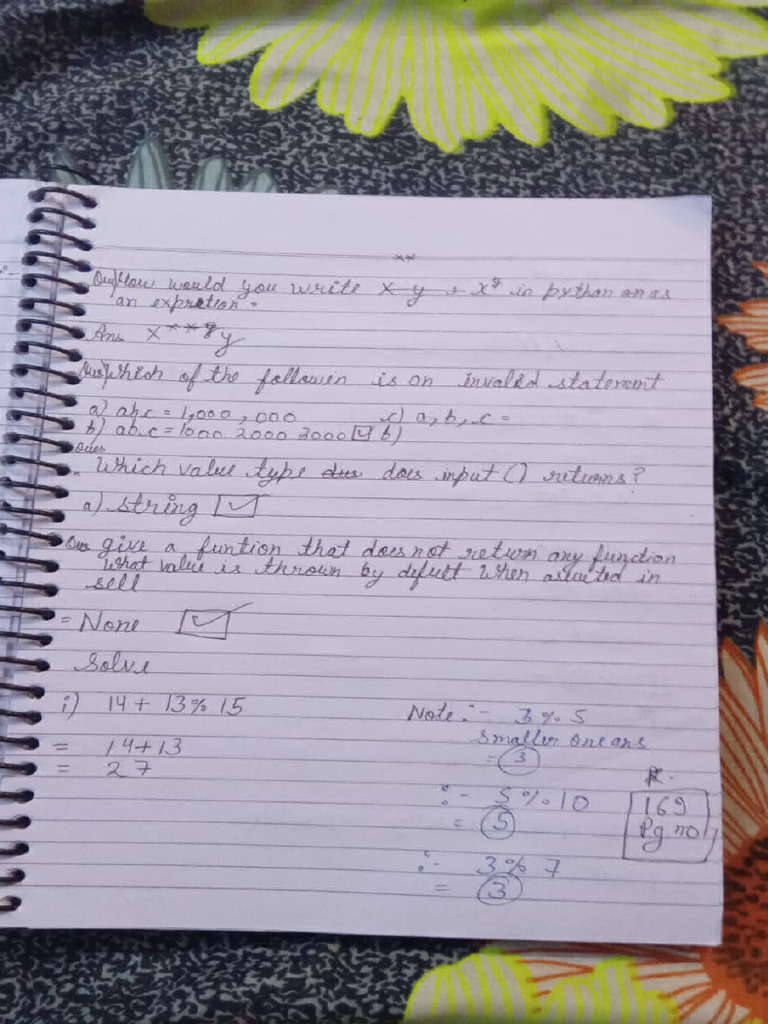 Que) How would you write x y , x^y in python an as
an expretion.
Ans x***y
Que) Which of the followin is an invalid statement
a) abc = 1,000,000 c) a, b, c =
b) abc = 1000 2000 3000 ☑ b)
Ques
. Which value type does input () returns?
a) string ☑
Que give a funtion that does not return any function
What value is thrown by defult when in
sell
= None ☑
Solve
i) 14 + 13 % 15
= 14+13
= 27
Note :- 3 % 5
smaller one ans
= 3
:- 5 % 10
= 5
169
Pg no
:- 3 % 7
= 3